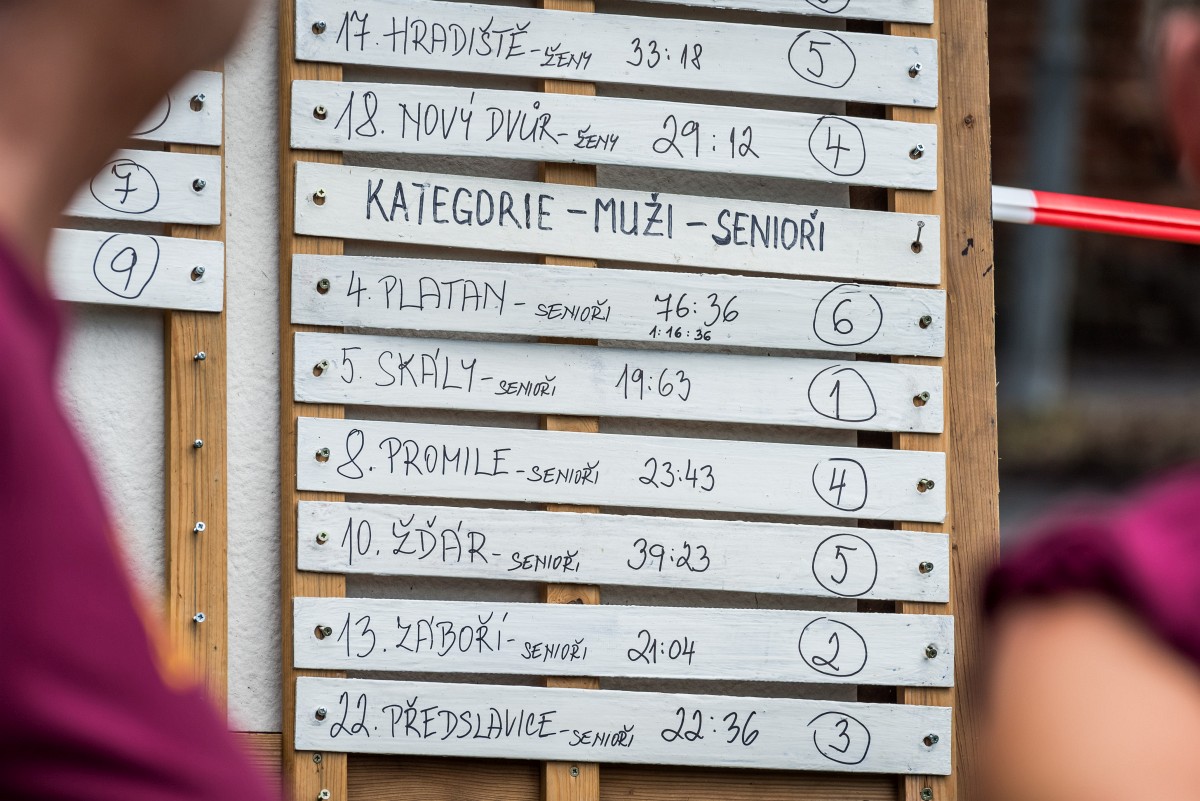 7
9
17. HRADIŠTĚ - ŽENY 33:18 5
18. NOVÝ DVŮR - ŽENY 29:12 4
KATEGORIE - MUŽI - SENIOŘI
4. PLATAN - SENIOŘI 76:36 6
1:16:36
5. SKÁLY - SENIOŘI 19:63 1
8. PROMILE - SENIOŘI 23:43 4
10. ŽĎÁR - SENIOŘI 39:23 5
13. ZÁBOŘÍ - SENIOŘI 21:04 2
22. PŘEDSLAVICE - SENIOŘI 22:36 3